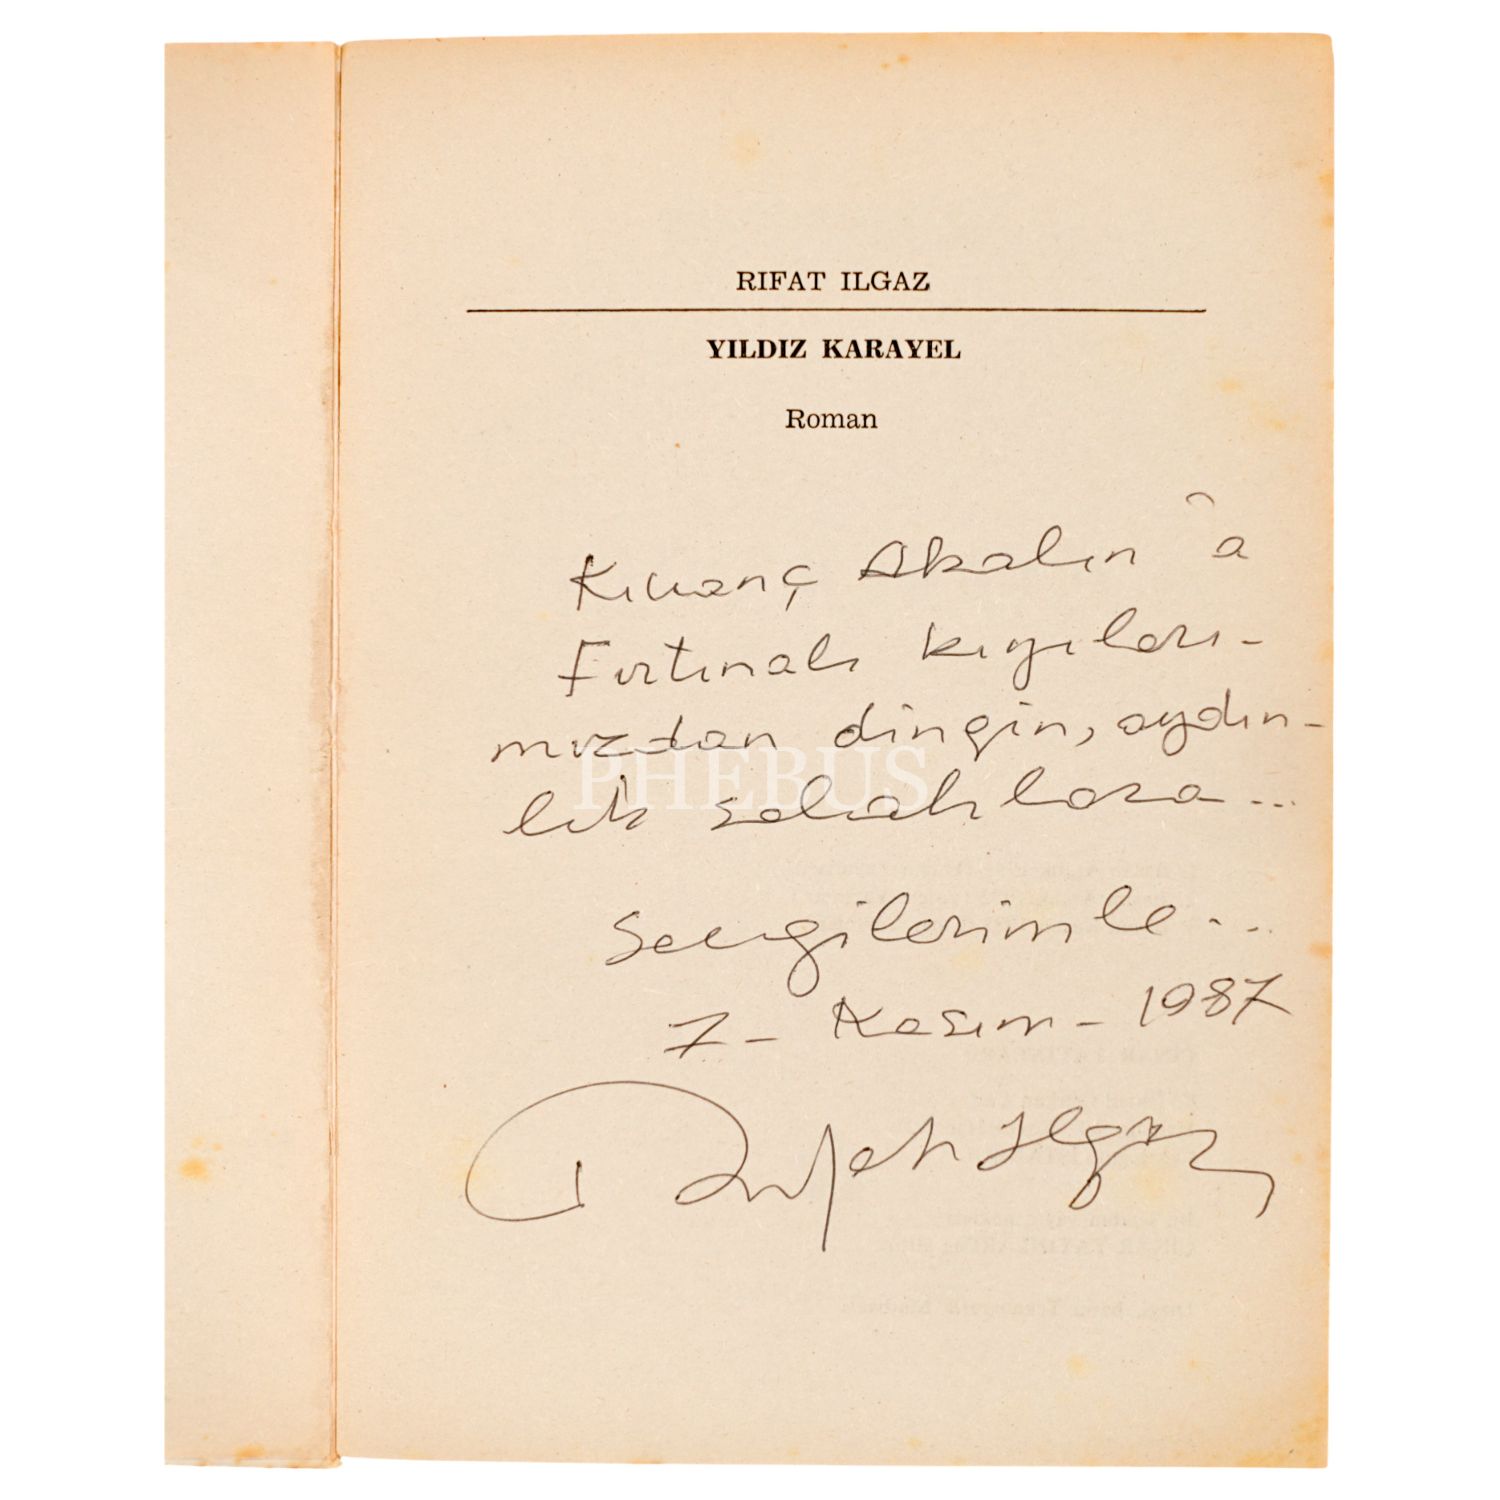 RIFAT ILGAZ
YILDIZ KARAYEL
Roman
Kıvanç Akalın'a
Fırtınalı kıyıları-
mızdan dingin, aydın-
lık sabahlara...
PHEBUS
Sevgilerimle...
7- Kasım - 1987
Rıfat Ilgaz